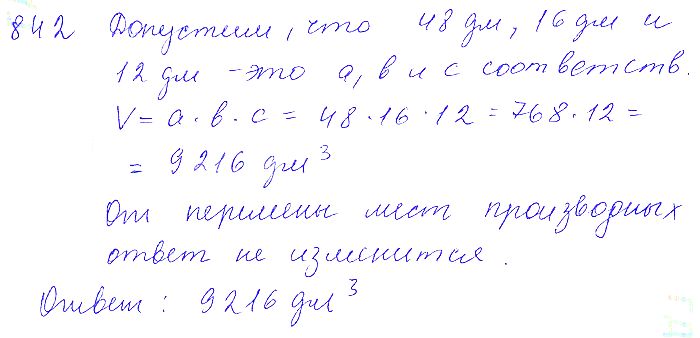 842 Допустим, что 48 дм, 16 дм и
12 дм - это a, в и c соответств.
V = a · в · c = 48 · 16 · 12 = 768 · 12 =
= 9216 дм³
От перемены мест производных
ответ не изменится.
Ответ: 9216 дм³